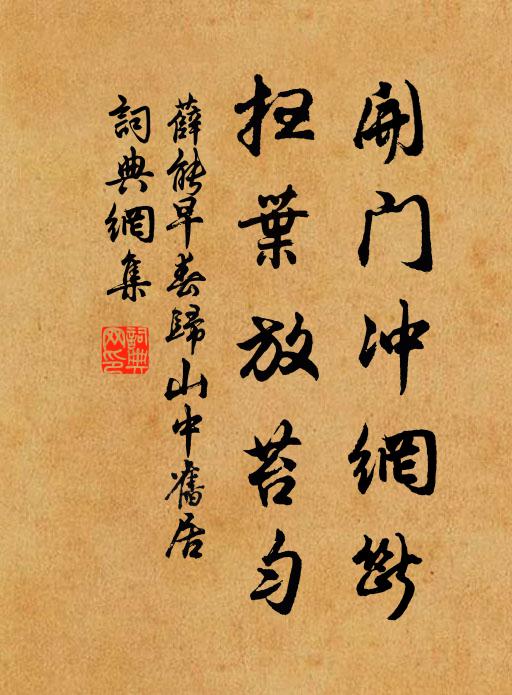 開门冲網斷
扫葉放苔勻
薛能早春歸山中舊居
詞典網集
詞典網印